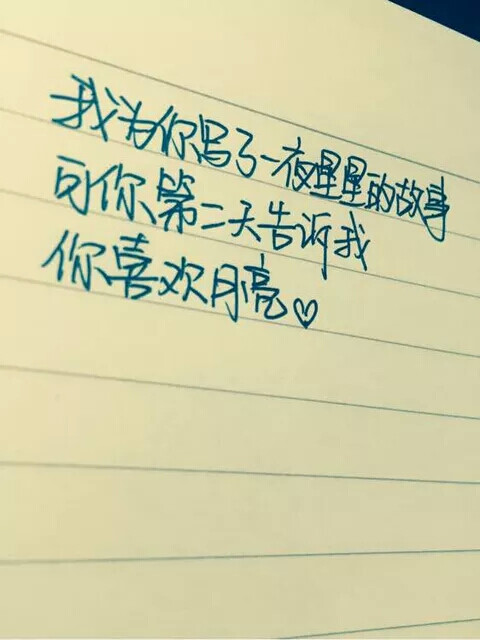 我为你写了一夜星星的故事
可你第二天告诉我
你喜欢月亮♡